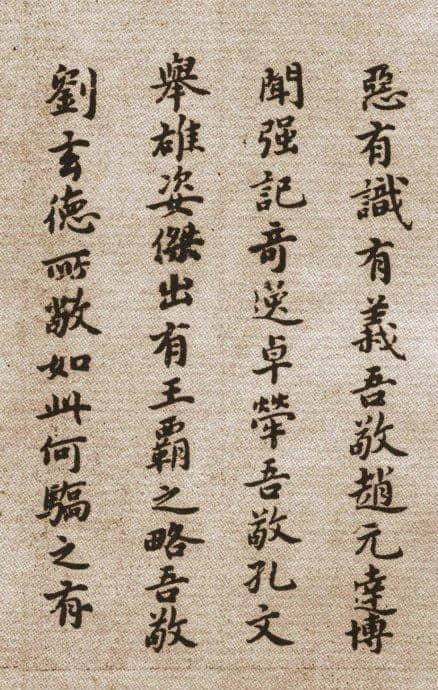 惡有識有義吾敬趙元達博
聞强記竒逸卓犖吾敬孔文
舉雄姿傑出有王霸之略吾敬
劉玄德所敬如此何驕之有